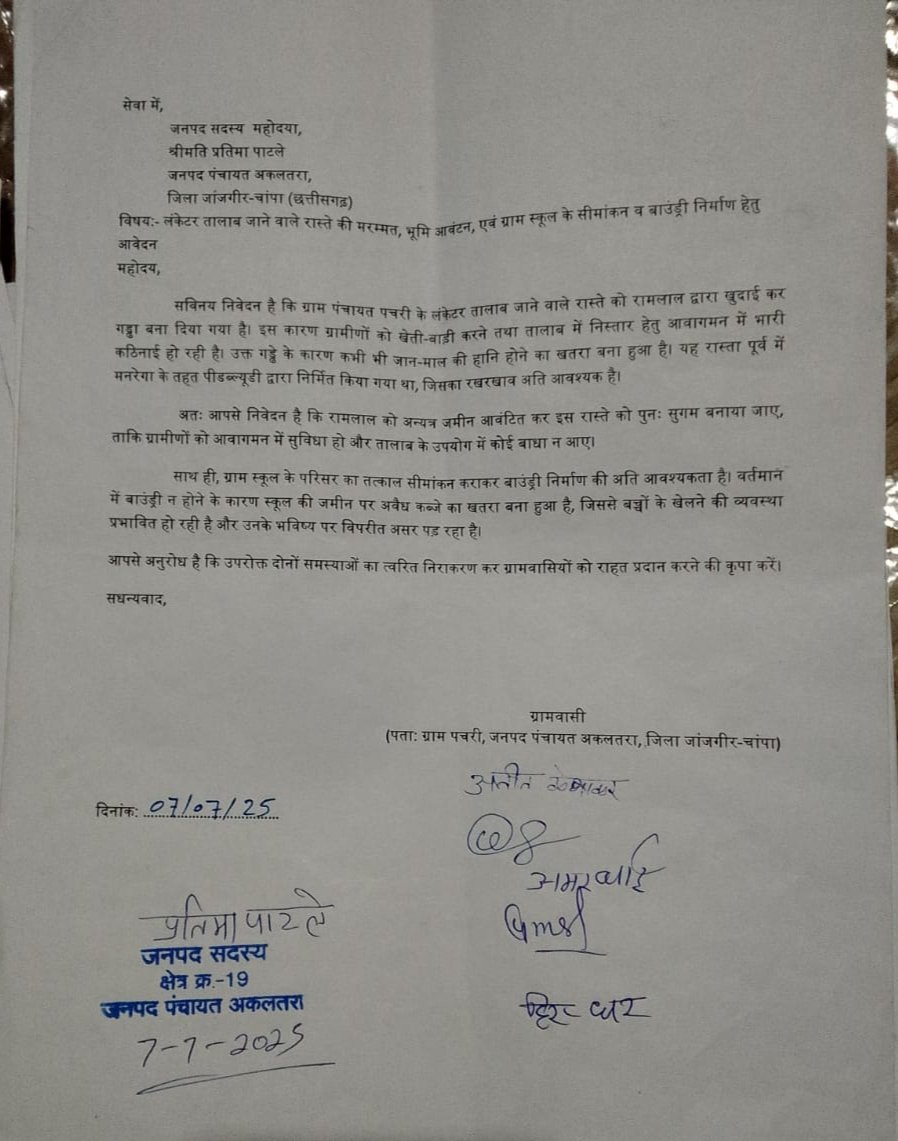 सेवा में,
जनपद सदस्य महोदया,
श्रीमति प्रतिमा पाटले
जनपद पंचायत अकलतरा,
जिला जांजगीर-चांपा (छत्तीसगढ़)
विषय:- लंकेटर तालाब जाने वाले रास्ते की मरम्मत, भूमि आवंटन, एवं ग्राम स्कूल के सीमांकन व बाउंड्री निर्माण हेतु
आवेदन
महोदय,
सविनय निवेदन है कि ग्राम पंचायत पचरी के लंकेटर तालाब जाने वाले रास्ते को रामलाल द्वारा खुदाई कर
गड्ढा बना दिया गया है। इस कारण ग्रामीणों को खेती-बाड़ी करने तथा तालाब में निस्तार हेतु आवागमन में भारी
कठिनाई हो रही है। उक्त गड्ढे के कारण कभी भी जान-माल की हानि होने का खतरा बना हुआ है। यह रास्ता पूर्व में
मनरेगा के तहत पीडब्ल्यूडी द्वारा निर्मित किया गया था, जिसका रखरखाव अति आवश्यक है।
अतः आपसे निवेदन है कि रामलाल को अन्यत्र जमीन आवंटित कर इस रास्ते को पुनः सुगम बनाया जाए,
ताकि ग्रामीणों को आवागमन में सुविधा हो और तालाब के उपयोग में कोई बाधा न आए।
साथ ही, ग्राम स्कूल के परिसर का तत्काल सीमांकन कराकर बाउंड्री निर्माण की अति आवश्यकता है। वर्तमान
में बाउंड्री न होने के कारण स्कूल की जमीन पर अवैध कब्जे का खतरा बना हुआ है, जिससे बच्चों के खेलने की व्यवस्था
प्रभावित हो रही है और उनके भविष्य पर विपरीत असर पड़ रहा है।
आपसे अनुरोध है कि उपरोक्त दोनों समस्याओं का त्वरित निराकरण कर ग्रामवासियों को राहत प्रदान करने की कृपा करें।
सधन्यवाद,
ग्रामवासी
(पता: ग्राम पचरी, जनपद पंचायत अकलतरा, जिला जांजगीर-चांपा)
दिनांक: 07/07/25
प्रतिमा पाटले
जनपद सदस्य
क्षेत्र क्र.-19
जनपद पंचायत अकलतरा
7-7-2025